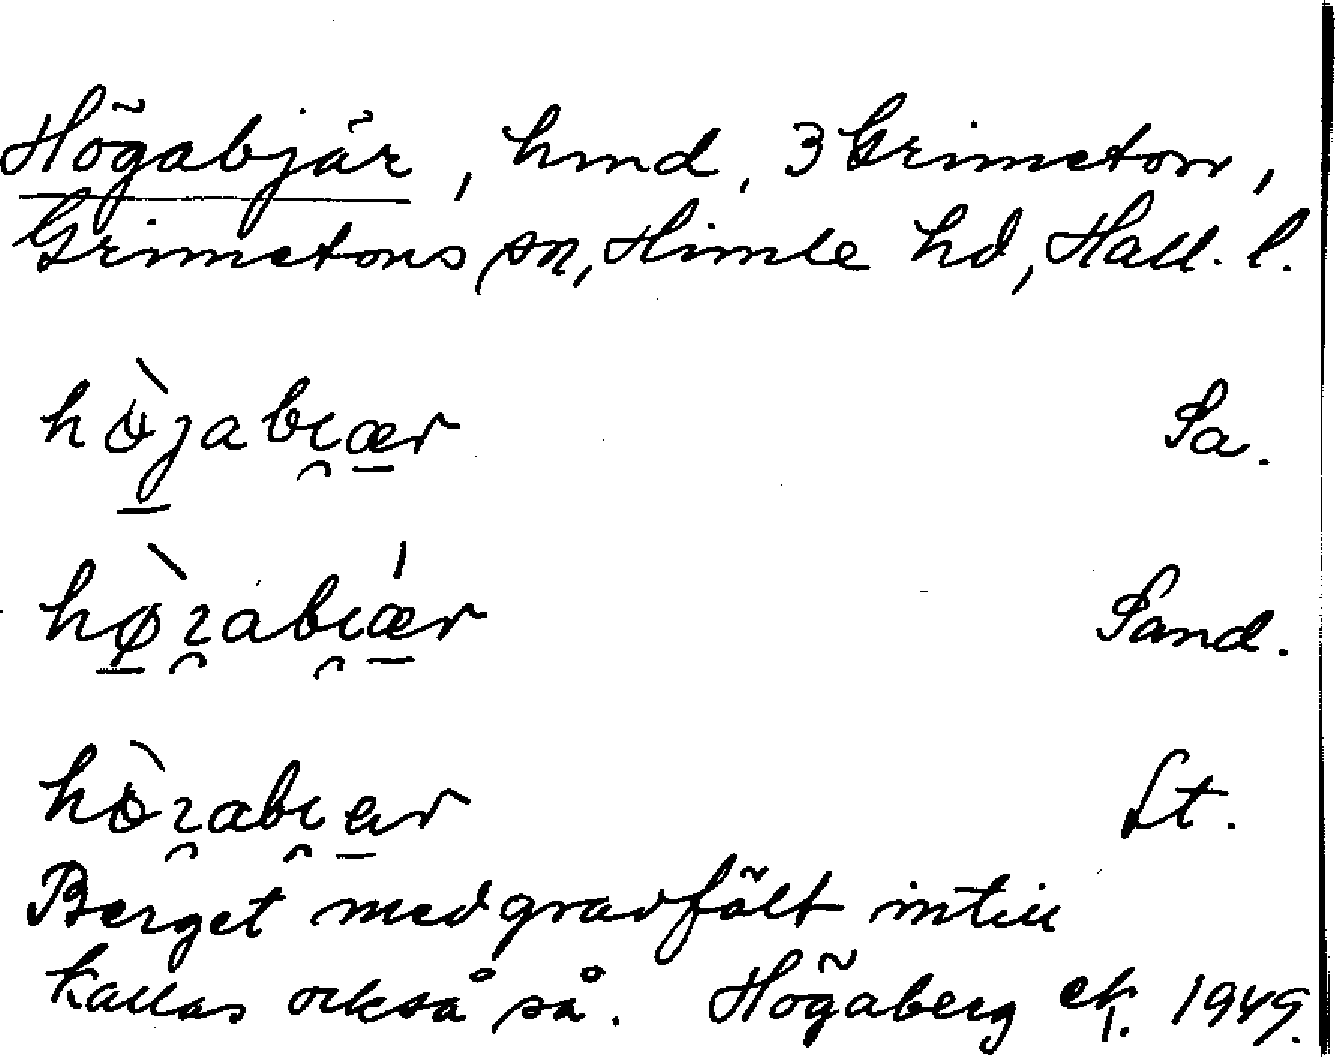 Högabjär, hmd, 3 Grimeton,
Grimetons sn, Himle hd, Hall. l.
Sa.
Sand.
St.
Berget med gravfält intill
kallas också så. Högaberg ek. 1949.